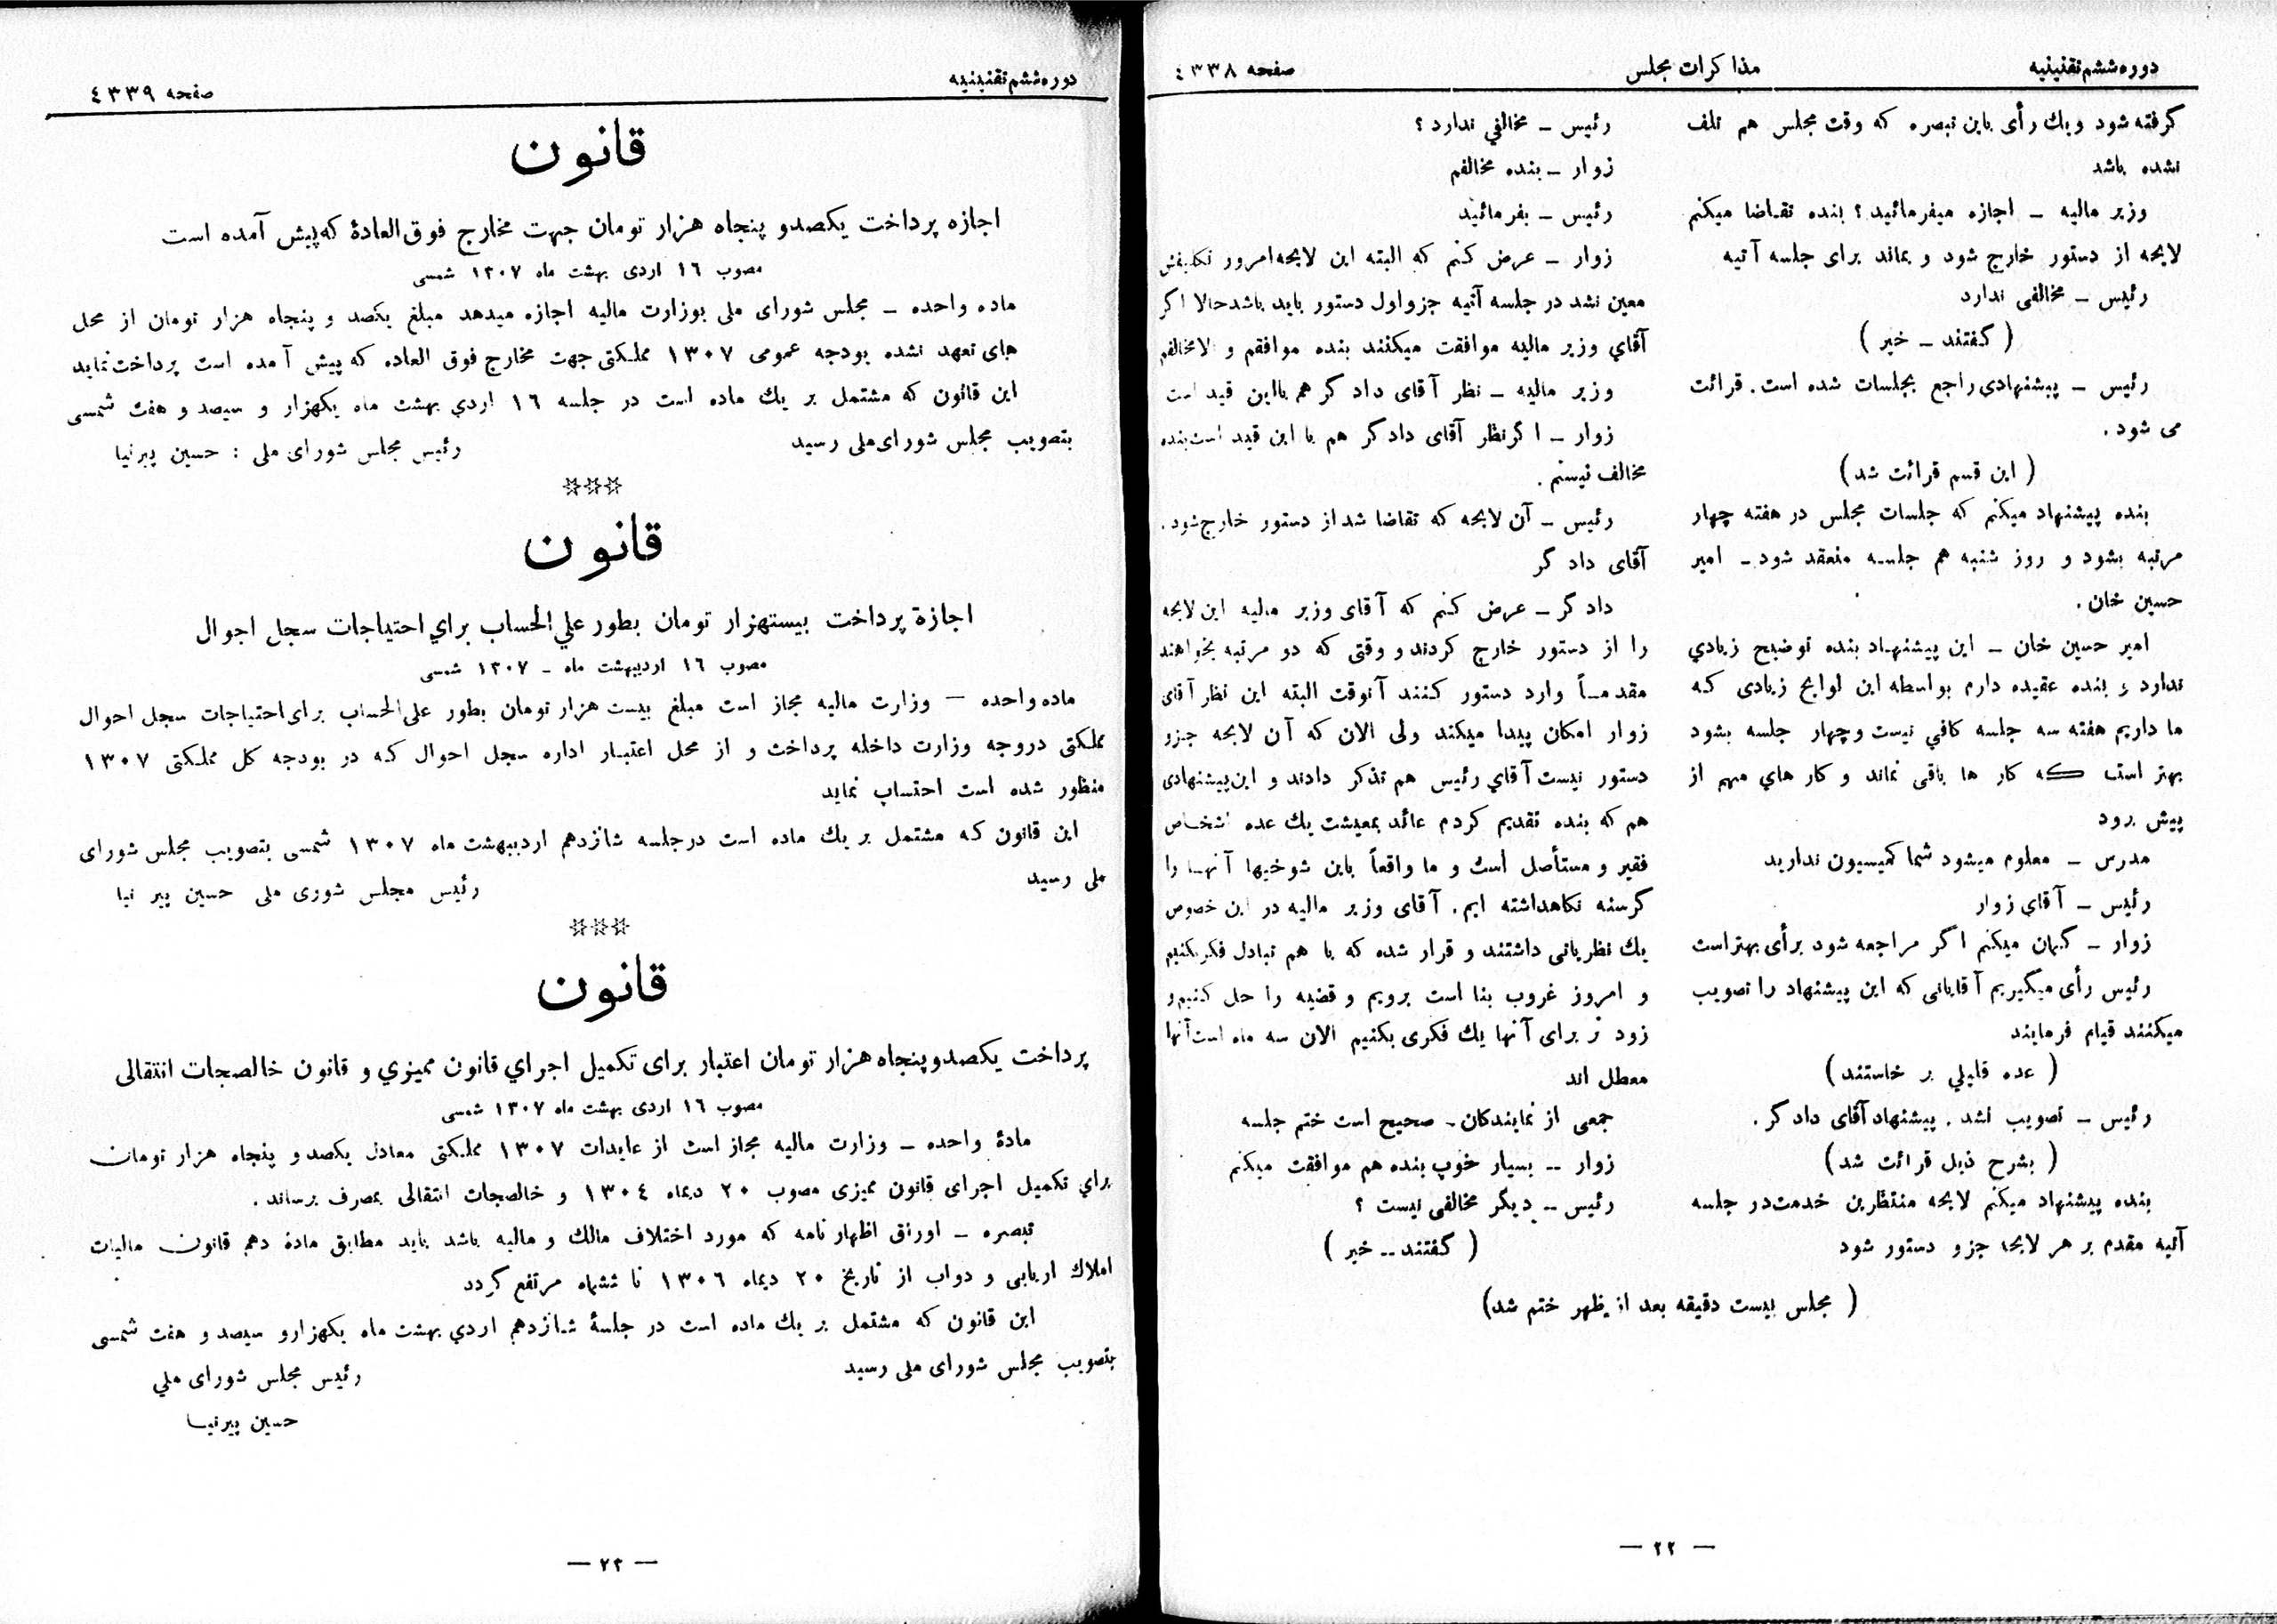 دوره ششم تقنینیه
مذاکرات مجلس
صفحه ٤٣٣٨
گرفته شود ویك رأی باین تبصره که وقت مجلس هم تلف
نشده باشد
وزیر مالیه ـ اجازه میفرمائید؟ بنده تقاضا میکنم
لایحه از دستور خارج شود و بماند برای جلسه آتیه
رئیس ـ مخالفی ندارد
( گفتند ـ خیر )
رئیس ـ پیشنهادی راجع بجلسات شده است. قرائت
می شود.
( این قسم قرائت شد )
بنده پیشنهاد میکنم که جلسات مجلس در هفته چهار
مرتبه بشود و روز شنبه هم جلسه منعقد شود ـ امیر
حسین خان.
امیر حسین خان ـ این پیشنهاد بنده توضیح زیادي
ندارد و بنده عقیده دارم بواسطه این لوایح زیادی که
ما داریم هفته سه جلسه کافي نیست وچهار جلسه بشود
بهتر است که کار ها باقی نماند و کار هاي مهم از
پیش برود
مدرس ـ معلوم میشود شما کمیسیون ندارید
رئیس ـ آقاي زوار
زوار ـ گمان میکنم اگر مراجعه شود برأی بهتراست
رئیس رأی میگیریم آقایانی که این پیشنهاد را تصویب
میکنند قیام فرمایند
( عده قلیلي بر خاستند )
رئیس ـ تصویب نشد. پیشنهاد آقای داد گر.
( بشرح ذیل قرائت شد )
بنده پیشنهاد میکنم لایحه منتظرین خدمت در جلسه
آتیه مقدم بر هر لایحه جزو دستور شود
رئیس ـ مخالفي ندارد؟
زوار ـ بنده مخالفم
رئیس ـ بفرمائید
زوار ـ عرض کنم که البته این لایحه امروز تکلیفش
معین نشد در جلسه آتیه جزو اول دستور باید باشد حالا اگر
آقاي وزیر مالیه موافقت میکنند بنده موافقم و الا مخالفم
وزیر مالیه ـ نظر آقای داد گر هم بااین قید است
زوار ـ اگر نظر آقای دادگر هم با این قید است بنده
مخالف نیستم.
رئیس ـ آن لایحه که تقاضا شد از دستور خارج شود.
آقای داد گر
داد گر ـ عرض کنم که آقای وزیر مالیه این لایحه
را از دستور خارج کردند و وقتی که دو مرتبه بخواهند
مقدماً وارد دستور کنند آنوقت البته این نظر آقای
زوار امکان پیدا میکند ولی الان که آن لایحه جزو
دستور نیست آقاي رئیس هم تذکر دادند و این پیشنهادی
هم که بنده تقدیم کردم عائد بمعیشت یك عده اشخاص
فقیر و مستأصل است و ما واقعاً باین شوخیها آنها را
گرسنه نگاهداشته ایم. آقای وزیر مالیه در این خصوص
یك نظریاتی داشتند و قرار شده که با هم تبادل فکر بکنیم
و امروز غروب بنا است برویم و قضیه را حل کنیم و
زود تر برای آنها یك فکری بکنیم الان سه ماه است آنها
معطل اند
جمعی از نمایندگان ـ صحیح است ختم جلسه
زوار ـ بسیار خوب بنده هم موافقت میکنم
رئیس ـ دیگر مخالفی نیست؟
( گفتند ـ خیر )
( مجلس بیست دقیقه بعد از ظهر ختم شد )
— ٢٢ —
دوره ششم تقنینیه
صفحه ٤٣٣٩
قانون
اجازه پرداخت یکصدو پنجاه هزار تومان جهت مخارج فوق العادهٔ که پیش آمده است
مصوب ١٦ اردی بهشت ماه ١٣٠٧ شمسی
ماده واحده ـ مجلس شورای ملی بوزارت مالیه اجازه میدهد مبلغ یکصد و پنجاه هزار تومان از محل
های تعهد نشده بودجه عمومی ١٣٠٧ مملکتی جهت مخارج فوق العاده که پیش آمده است پرداخت نماید
این قانون که مشتمل بر یك ماده است در جلسه ١٦ اردي بهشت ماه یکهزار و سیصد و هفت شمسی
بتصویب مجلس شورای ملی رسید
رئیس مجلس شورای ملی : حسین پیرنیا
***
قانون
اجازة پرداخت بیستهزار تومان بطور علي الحساب براي احتیاجات سجل احوال
مصوب ١٦ اردیبهشت ماه ـ ١٣٠٧ شمسی
ماده واحده — وزارت مالیه مجاز است مبلغ بیست هزار تومان بطور علی الحساب برای احتیاجات سجل احوال
مملکتی دروجه وزارت داخله پرداخت و از محل اعتبار اداره سجل احوال که در بودجه کل مملکتی ١٣٠٧
منظور شده است احتساب نماید
این قانون که مشتمل بر یك ماده است درجلسه شانزدهم اردیبهشت ماه ١٣٠٧ شمسی بتصویب مجلس شورای
ملی رسید
رئیس مجلس شوری ملی حسین پیر نیا
***
قانون
پرداخت یکصدو پنجاه هزار تومان اعتبار برای تکمیل اجراي قانون ممیزي و قانون خالصجات انتقالی
مصوب ١٦ اردی بهشت ماه ١٣٠٧ شمسی
مادهٔ واحده ـ وزارت مالیه مجاز است از عایدات ١٣٠٧ مملکتی معادل یکصد و پنجاه هزار تومان
براي تکمیل اجرای قانون ممیزی مصوب ٢٠ دیماه ١٣٠٤ و خالصجات انتقالی بمصرف برساند.
تبصره ـ اوراق اظهار نامه که مورد اختلاف مالك و مالیه باشد باید مطابق مادهٔ دهم قانون مالیات
املاك اربابی و دواب از تاریخ ٢٠ دیماه ١٣٠٦ تا ششماه مرتفع گردد
این قانون که مشتمل بر یك ماده است در جلسهٔ شانزدهم اردي بهشت ماه یکهزارو سیصد و هفت شمسی
بتصویب مجلس شورای ملی رسید
رئیس مجلس شورای ملي
حسین پیرنیا
— ٢٣ —